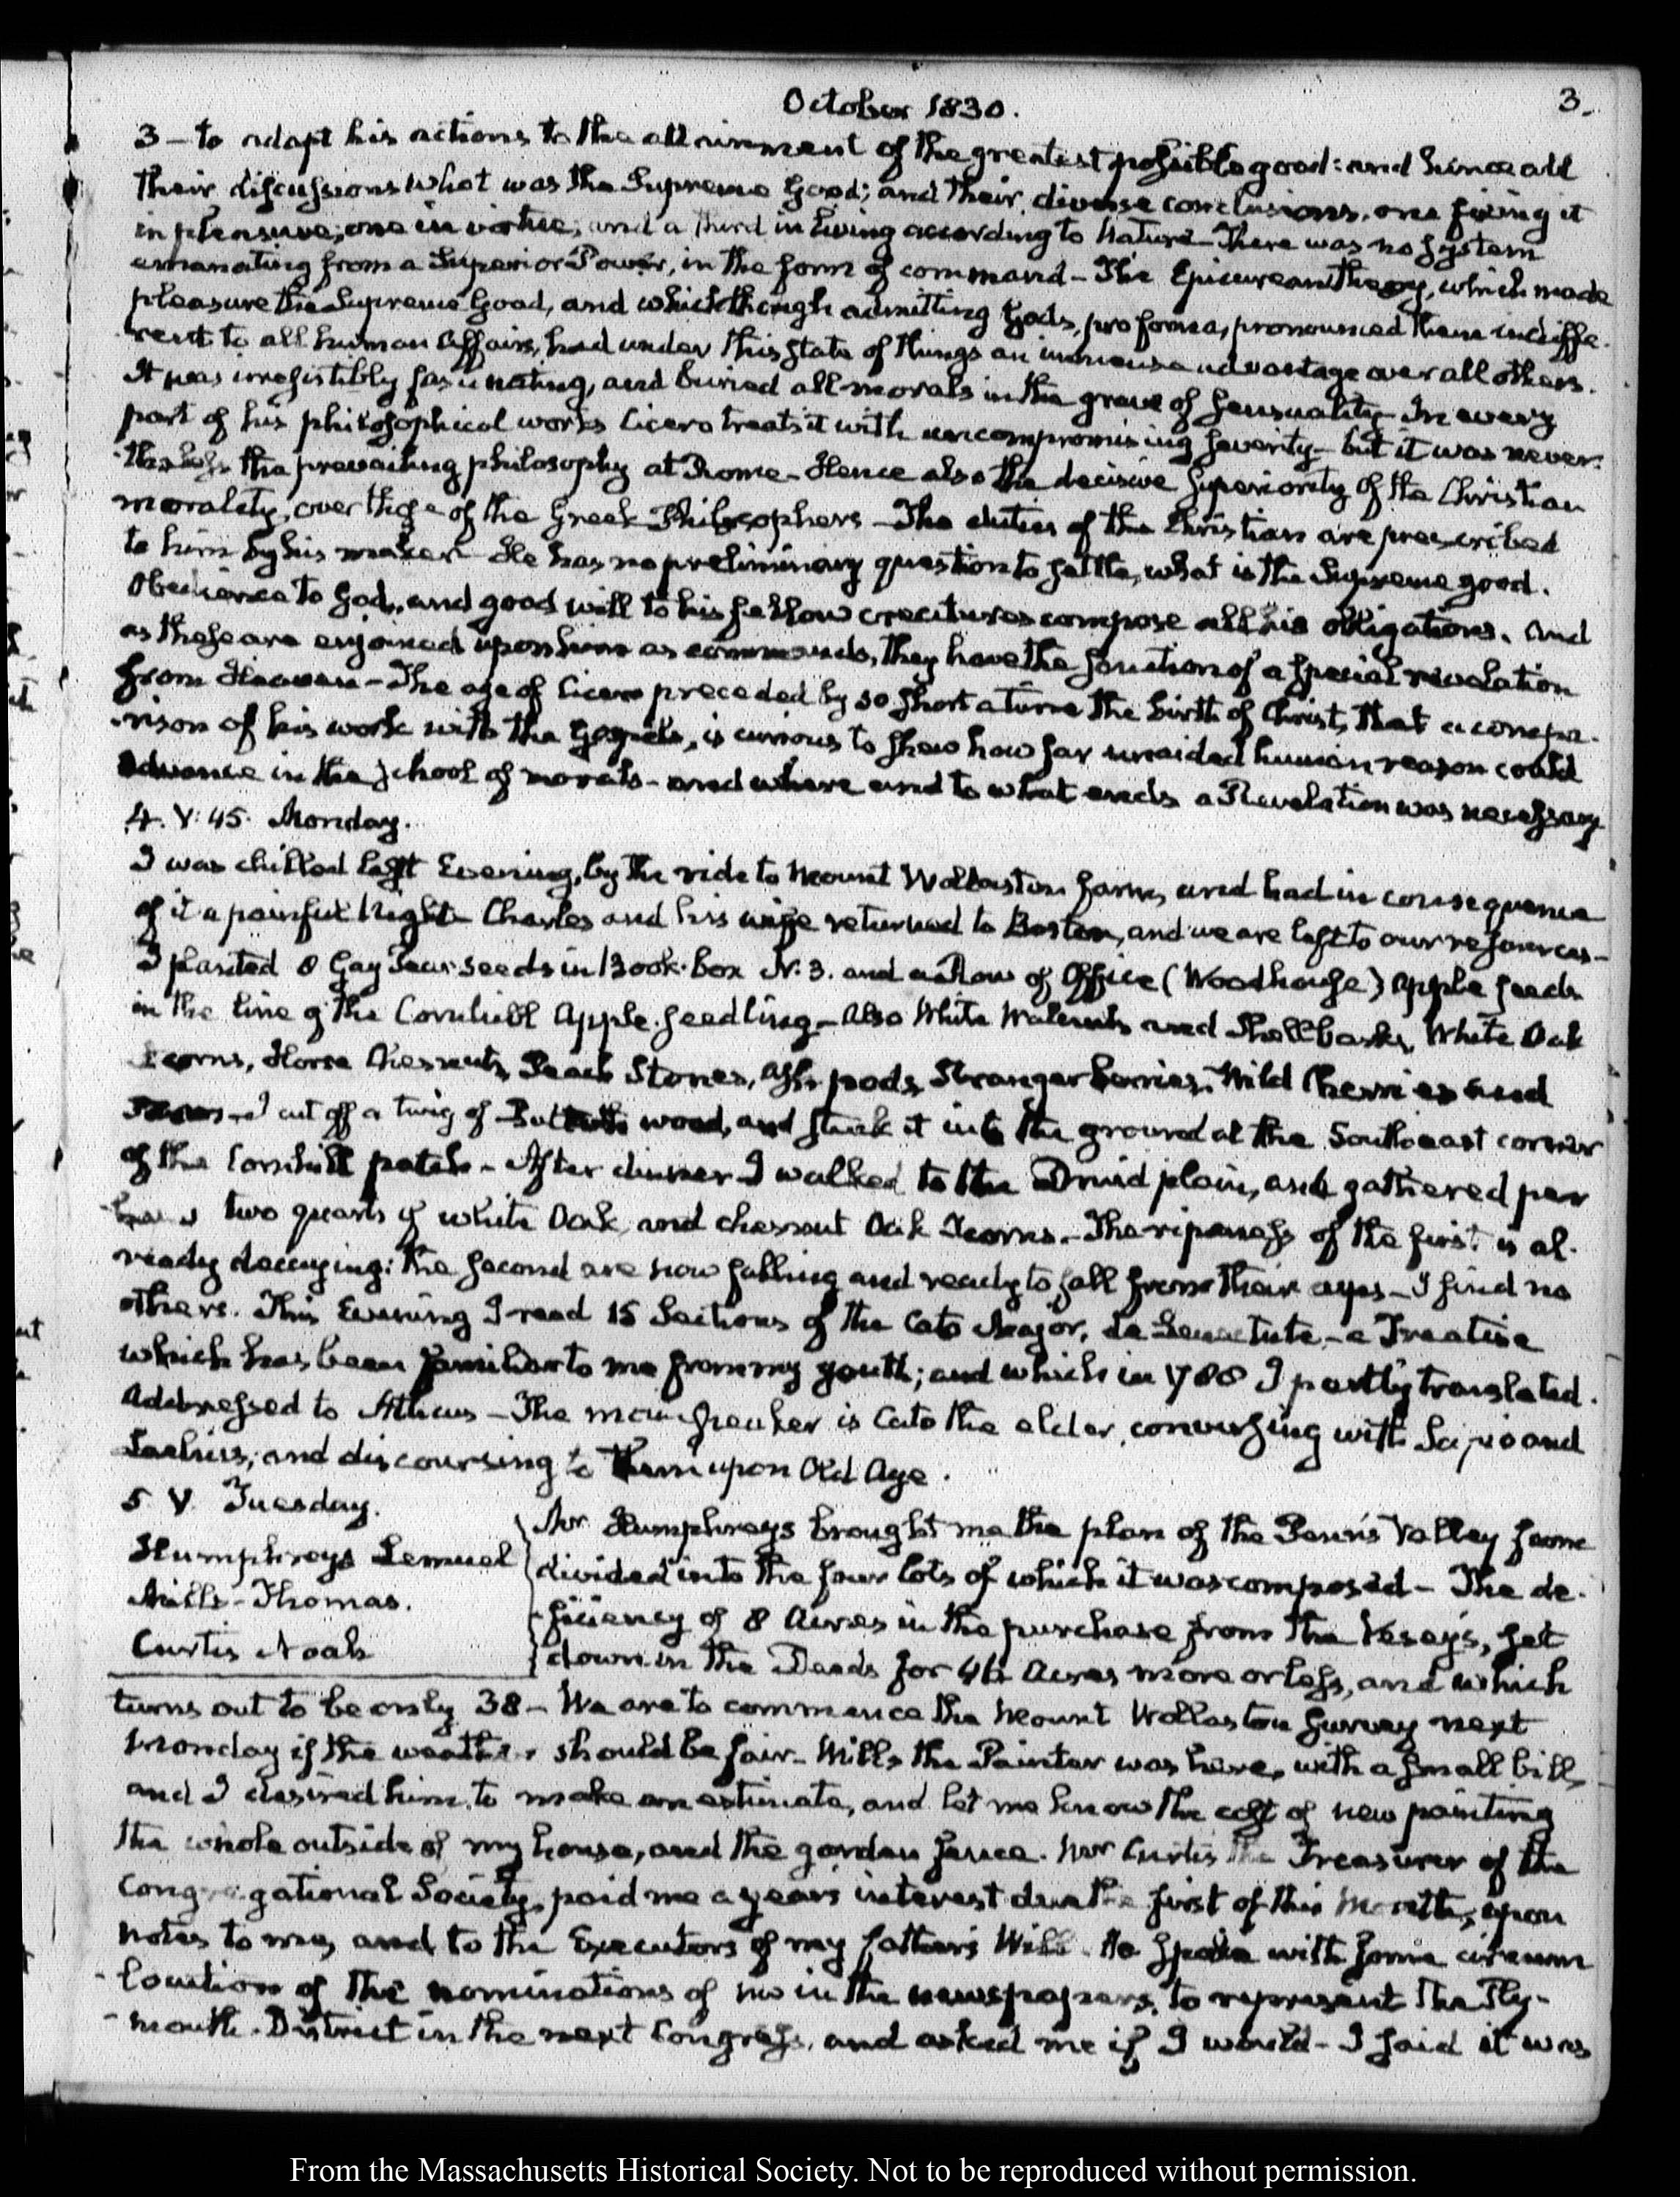 October 1830.
3.
3 — to adapt his actions to the attainment of the greatest possible good: and hence all
their discussions what was the Supreme Good; and their diverse conclusions, one fixing it
in pleasure; one in virtue; and a third in living according to Nature — There was no system
emanating from a Superior Power, in the form of command — The Epicurean Theory, which made
pleasure the Supreme Good, and which though admitting Gods, pro forma, pronounced them indiffe-
rent to all human affairs, had under this state of things an immense advantage over all others.
It was irresistibly fascinating, and buried all morals in the grave of sensuality — In every
part of his philosophical works Cicero treats it with uncompromising severity — but it was never-
theless the prevailing philosophy at Rome — Hence also the decisive superiority of the Christian
morality, over those of the Greek Philosophers — The duties of the Christian are prescribed
to him by his maker — He has no preliminary question to settle, what is the Supreme good.
Obedience to God, and good will to his fellow creatures compose all his obligations. And
as these are enjoined upon him as commands, they have the sanction of a special revelation
from Heaven — The age of Cicero preceded by so short a time the birth of Christ, that a compa-
-rison of his work with the Gospels, is curious to shew how far unaided human reason could
advance in the school of morals — and where and to what ends a Revelation was necessary
4. V: 45. Monday.
I was chilled last Evening, by the ride to Mount Wollaston farm, and had in consequence
of it a painful Night — Charles and his wife returned to Boston, and we are left to our resources —
I planted 8 Gay Pear seeds in Book-box N. 3. and a Row of Office (Woodhouse) apple seeds
in the line of the Cornhill Apple seedling — Also White Walnuts and Shellbarks, White Oak
Acorns, Horse Chesnuts, Peach Stones, Ash pods, Stranger berries, Wild Cherries and
I cut off a twig of wood, and stuck it into the ground at the Southeast corner
of the Cornhill patch — After dinner I walked to the Druid plain, and gathered per
haps two quarts of white Oak, and chesnut Oak Acorns. — The ripeness of the first is al-
ready decaying: the second are now falling and ready to fall from their cups — I find no
others. This Evening I read 15 Sections of the Cato Major, de Senectute — a Treatise
which has been familiar to me from my youth; and which in 1788 I partly translated.
Addressed to Atticus — The main speaker is Cato the elder, conversing with Scipio and
Laelius, and discoursing to them upon Old Age.
5. V. Tuesday.
Humphreys Lemuel
Mills - Thomas.
Curtis Noah
Mr Humphreys brought me the plan of the Penn's Valley farm
divided into the four lots of which it was composed — The de-
-ficiency of 8 Acres in the purchase from the Veseys, set
down in the Deeds for 46 Acres more or less, and which
turns out to be only 38 — We are to commence the Mount Wollaston survey next
Monday if the weather should be fair — Mills the Painter was here, with a small bill,
and I desired him to make an estimate, and let me know the cost of new painting
the whole outside of my house, and the garden fence. Mr Curtis the Treasurer of the
Congregational Society, paid me a years interest due the first of this Month, upon
notes to me, and to the Executors of my fathers Will. He spoke with some circum
-locution of the nominations of me in the newspapers, to represent the Ply-
-mouth District in the next Congress, and asked me if I would — I said it was
From the Massachusetts Historical Society. Not to be reproduced without permission.